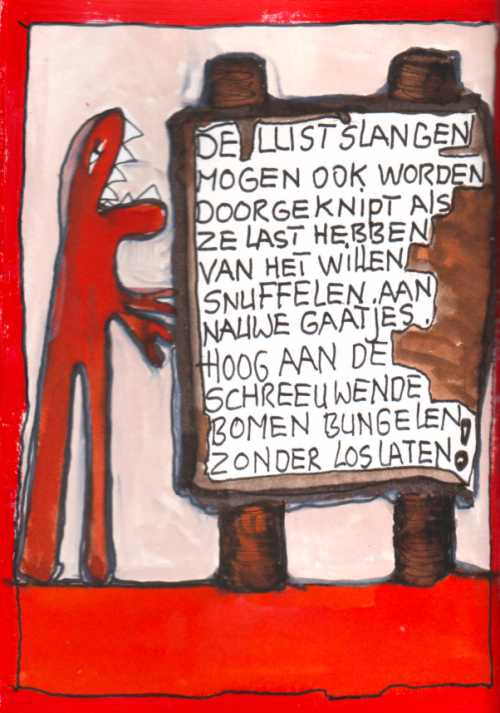 DE LUSTSLANGEN
MOGEN OOK WORDEN
DOORGEKNIPT ALS
ZE LAST HEBBEN
VAN HET WILLEN
SNUFFELEN AAN
NAUWE GAATJES.
HOOG AAN DE
SCHREEUWENDE
BOMEN BUNGELEN
ZONDER LOSLATEN!